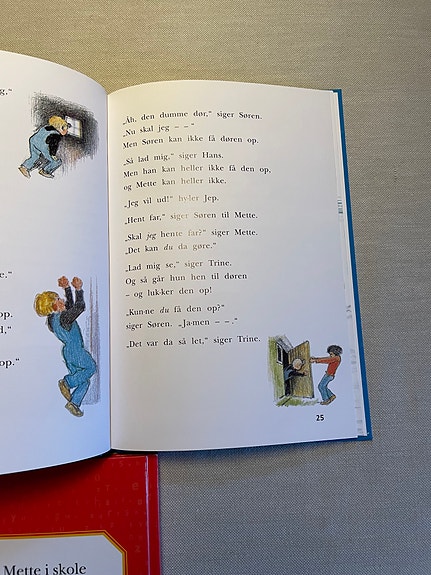 g,“
e.“
op.
d,“
op.“
„Åh, den dumme dør,“ siger Søren.
„Nu skal jeg – – “
Men Søren kan ikke få døren op.
„Så lad mig,“ siger Hans.
Men han kan heller ikke få den op,
og Mette kan heller ikke.
„Jeg vil ud!“ hyler Jep.
„Hent far,“ siger Søren til Mette.
„Skal jeg hente far?“ siger Mette.
„Det kan du da gøre.“
„Lad mig se,“ siger Trine.
Og så går hun hen til døren
– og luk-ker den op!
„Kun-ne du få den op?“
siger Søren. „Ja-men – –.“
„Det var da så let,“ siger Trine.
25
Mette i skole